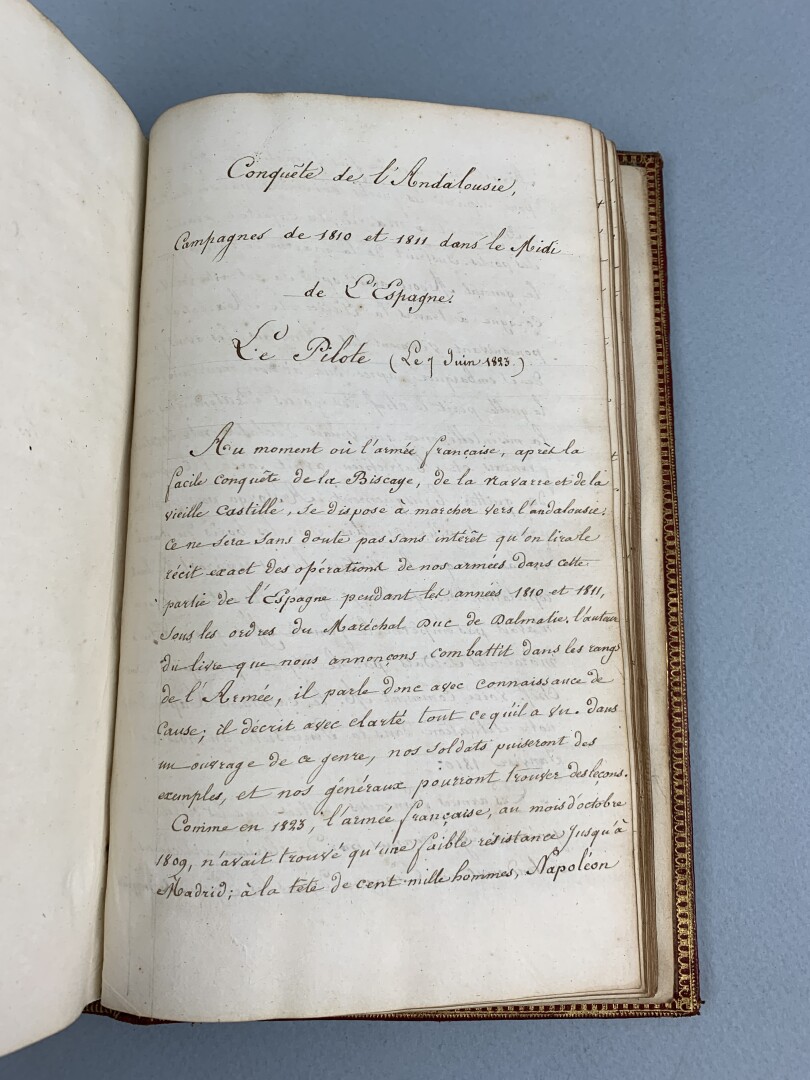 Conquête de l'Andalousie,
Campagnes de 1810 et 1811 dans le Midi
de L'Espagne.
Le Pilote (Le 7 Juin 1823.)
Au moment où l'armée française, après la
facile conquête de la Biscaye, de la Navarre et de la
vieille Castille, se dispose à marcher vers l'andalousie;
ce ne sera sans doute pas sans intérêt qu'on lira le
récit exact des opérations de nos armées dans cette
partie de l'Espagne pendant les années 1810 et 1811,
sous les ordres du Maréchal Duc de Dalmatie. l'auteur
du livre que nous annonçons, combattit dans les rangs
de l'Armée, il parle donc avec connaissance de
Cause; il décrit avec clarté tout ce qu'il a vu. dans
un ouvrage de ce genre, nos soldats puiseront des
exemples, et nos généraux pourront trouver des leçons.
Comme en 1823, l'armée française, au mois d'octobre
1809, n'avait trouvé qu'une faible résistance jusqu'à
Madrid; à la tête de cent mille hommes, Napoléon